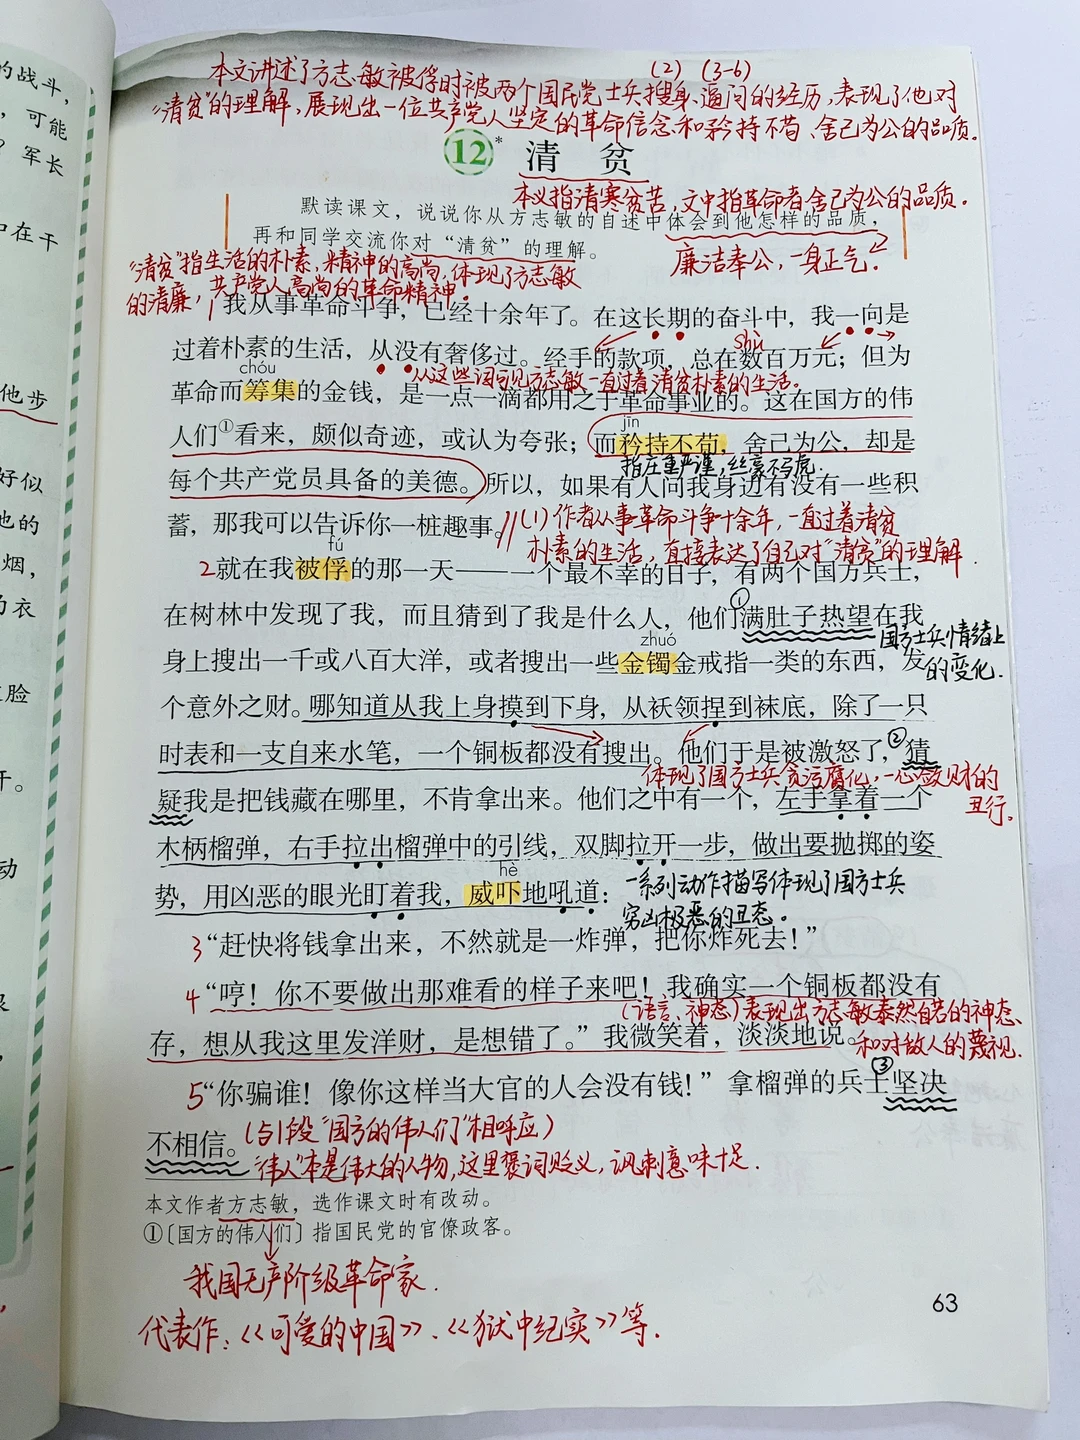 的战斗,
可能
? 军长
口在干
他步
好似
他的
烟,
衣
脸
开。
动
本文讲述了方志敏被俘时被两个国民党士兵搜身、逼问的经历,表现了他对
(2) (3-6)
“清贫”的理解,展现出一位共产党人坚定的革命信念和矜持不苟、舍己为公的品质。
12* 清 贫
本义指清寒贫苦,文中指革命者舍己为公的品质。
默读课文,说说你从方志敏的自述中体会到他怎样的品质,
再和同学交流你对“清贫”的理解。
廉洁奉公,一身正气。
“清贫”指生活的朴素,精神的高尚,体现了方志敏
的清廉,共产党人高尚的革命精神。
1 我从事革命斗争,已经十余年了。在这长期的奋斗中,我一向是
shù
过着朴素的生活,从没有奢侈过。经手的款项,总在数百万元;但为
chóu
从这些词可见方志敏一直过着清贫朴素的生活。
革命而筹集的金钱,是一点一滴都用之于革命事业的。这在国方的伟
jīn
人们①看来,颇似奇迹,或认为夸张;而矜持不苟,舍己为公,却是
指庄重严谨,丝毫不马虎
每个共产党员具备的美德。所以,如果有人问我身边有没有一些积
蓄,那我可以告诉你一桩趣事。
(1)作者从事革命斗争十余年,一直过着清贫
朴素的生活,直接表达了自己对“清贫”的理解.
fú
2就在我被俘的那一天——一个最不幸的日子,有两个国方兵士,
①
在树林中发现了我,而且猜到了我是什么人,他们满肚子热望在我
国方士兵情绪上
的变化.
zhuó
身上搜出一千或八百大洋,或者搜出一些金镯金戒指一类的东西,发
个意外之财。哪知道从我上身摸到下身,从袄领捏到袜底,除了一只
②
时表和一支自来水笔,一个铜板都没有搜出。他们于是被激怒了,猜
体现了国方士兵贪污腐化,一心敛财的
丑行。
疑我是把钱藏在哪里,不肯拿出来。他们之中有一个,左手拿着一个
木柄榴弹,右手拉出榴弹中的引线,双脚拉开一步,做出要抛掷的姿
hè
势,用凶恶的眼光盯着我,威吓地吼道:
一系列动作描写体现了国方士兵
穷凶极恶的丑态。
3“赶快将钱拿出来,不然就是一炸弹,把你炸死去!”
4“哼!你不要做出那难看的样子来吧!我确实一个铜板都没有
(语言、神态)表现出方志敏泰然自若的神态
和对敌人的蔑视.
存,想从我这里发洋财,是想错了。”我微笑着,淡淡地说。
③
5“你骗谁!像你这样当大官的人会没有钱!”拿榴弹的兵士坚决
不相信。
(与1段“国方的伟人们”相呼应)
“伟人”本是伟大的人物,这里褒词贬义,讽刺意味十足.
本文作者方志敏,选作课文时有改动。
①〔国方的伟人们〕指国民党的官僚政客。
我国无产阶级革命家.
代表作:《可爱的中国》、《狱中纪实》等.
63